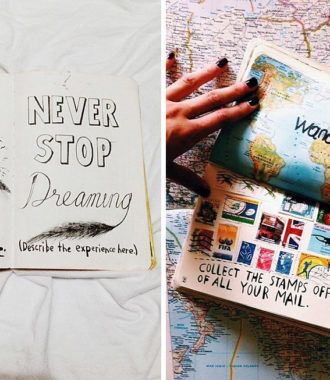 NEVER
STOP
Dreaming
(Describe the experience here.)
COLLECT THE STAMPS OFF
OF ALL YOUR MAIL.